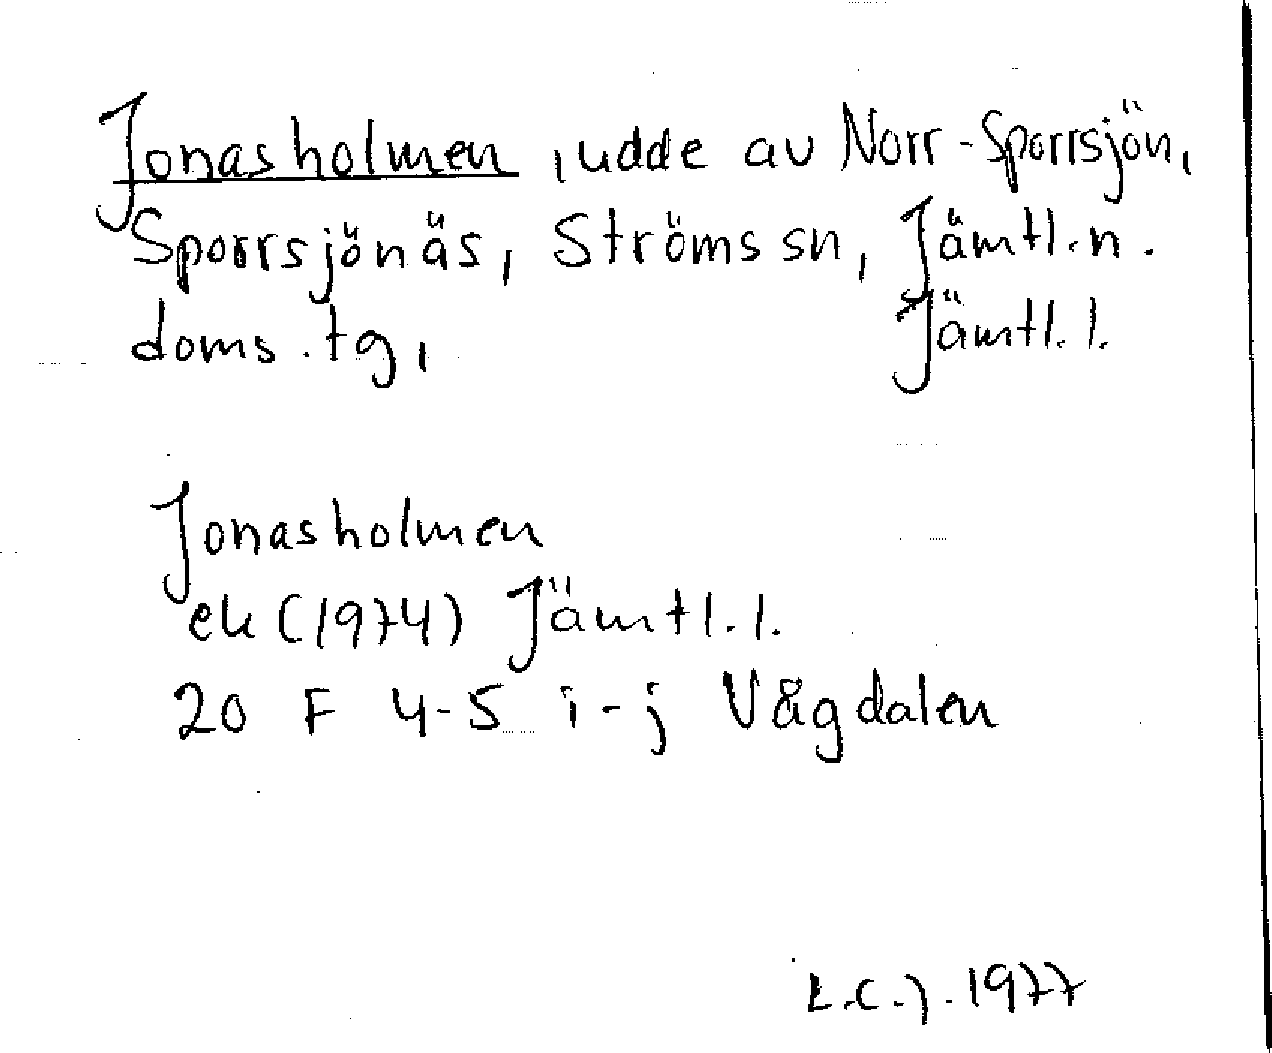 Jonasholmen, udde av Norr-Sporrsjön,
Sporrsjönäs, Ströms sn, Jämtl.n.
doms.tg, Jämtl.l.
Jonasholmen
ek (1974) Jämtl.l.
20 F 4-5 i-j Vågdalen
1977